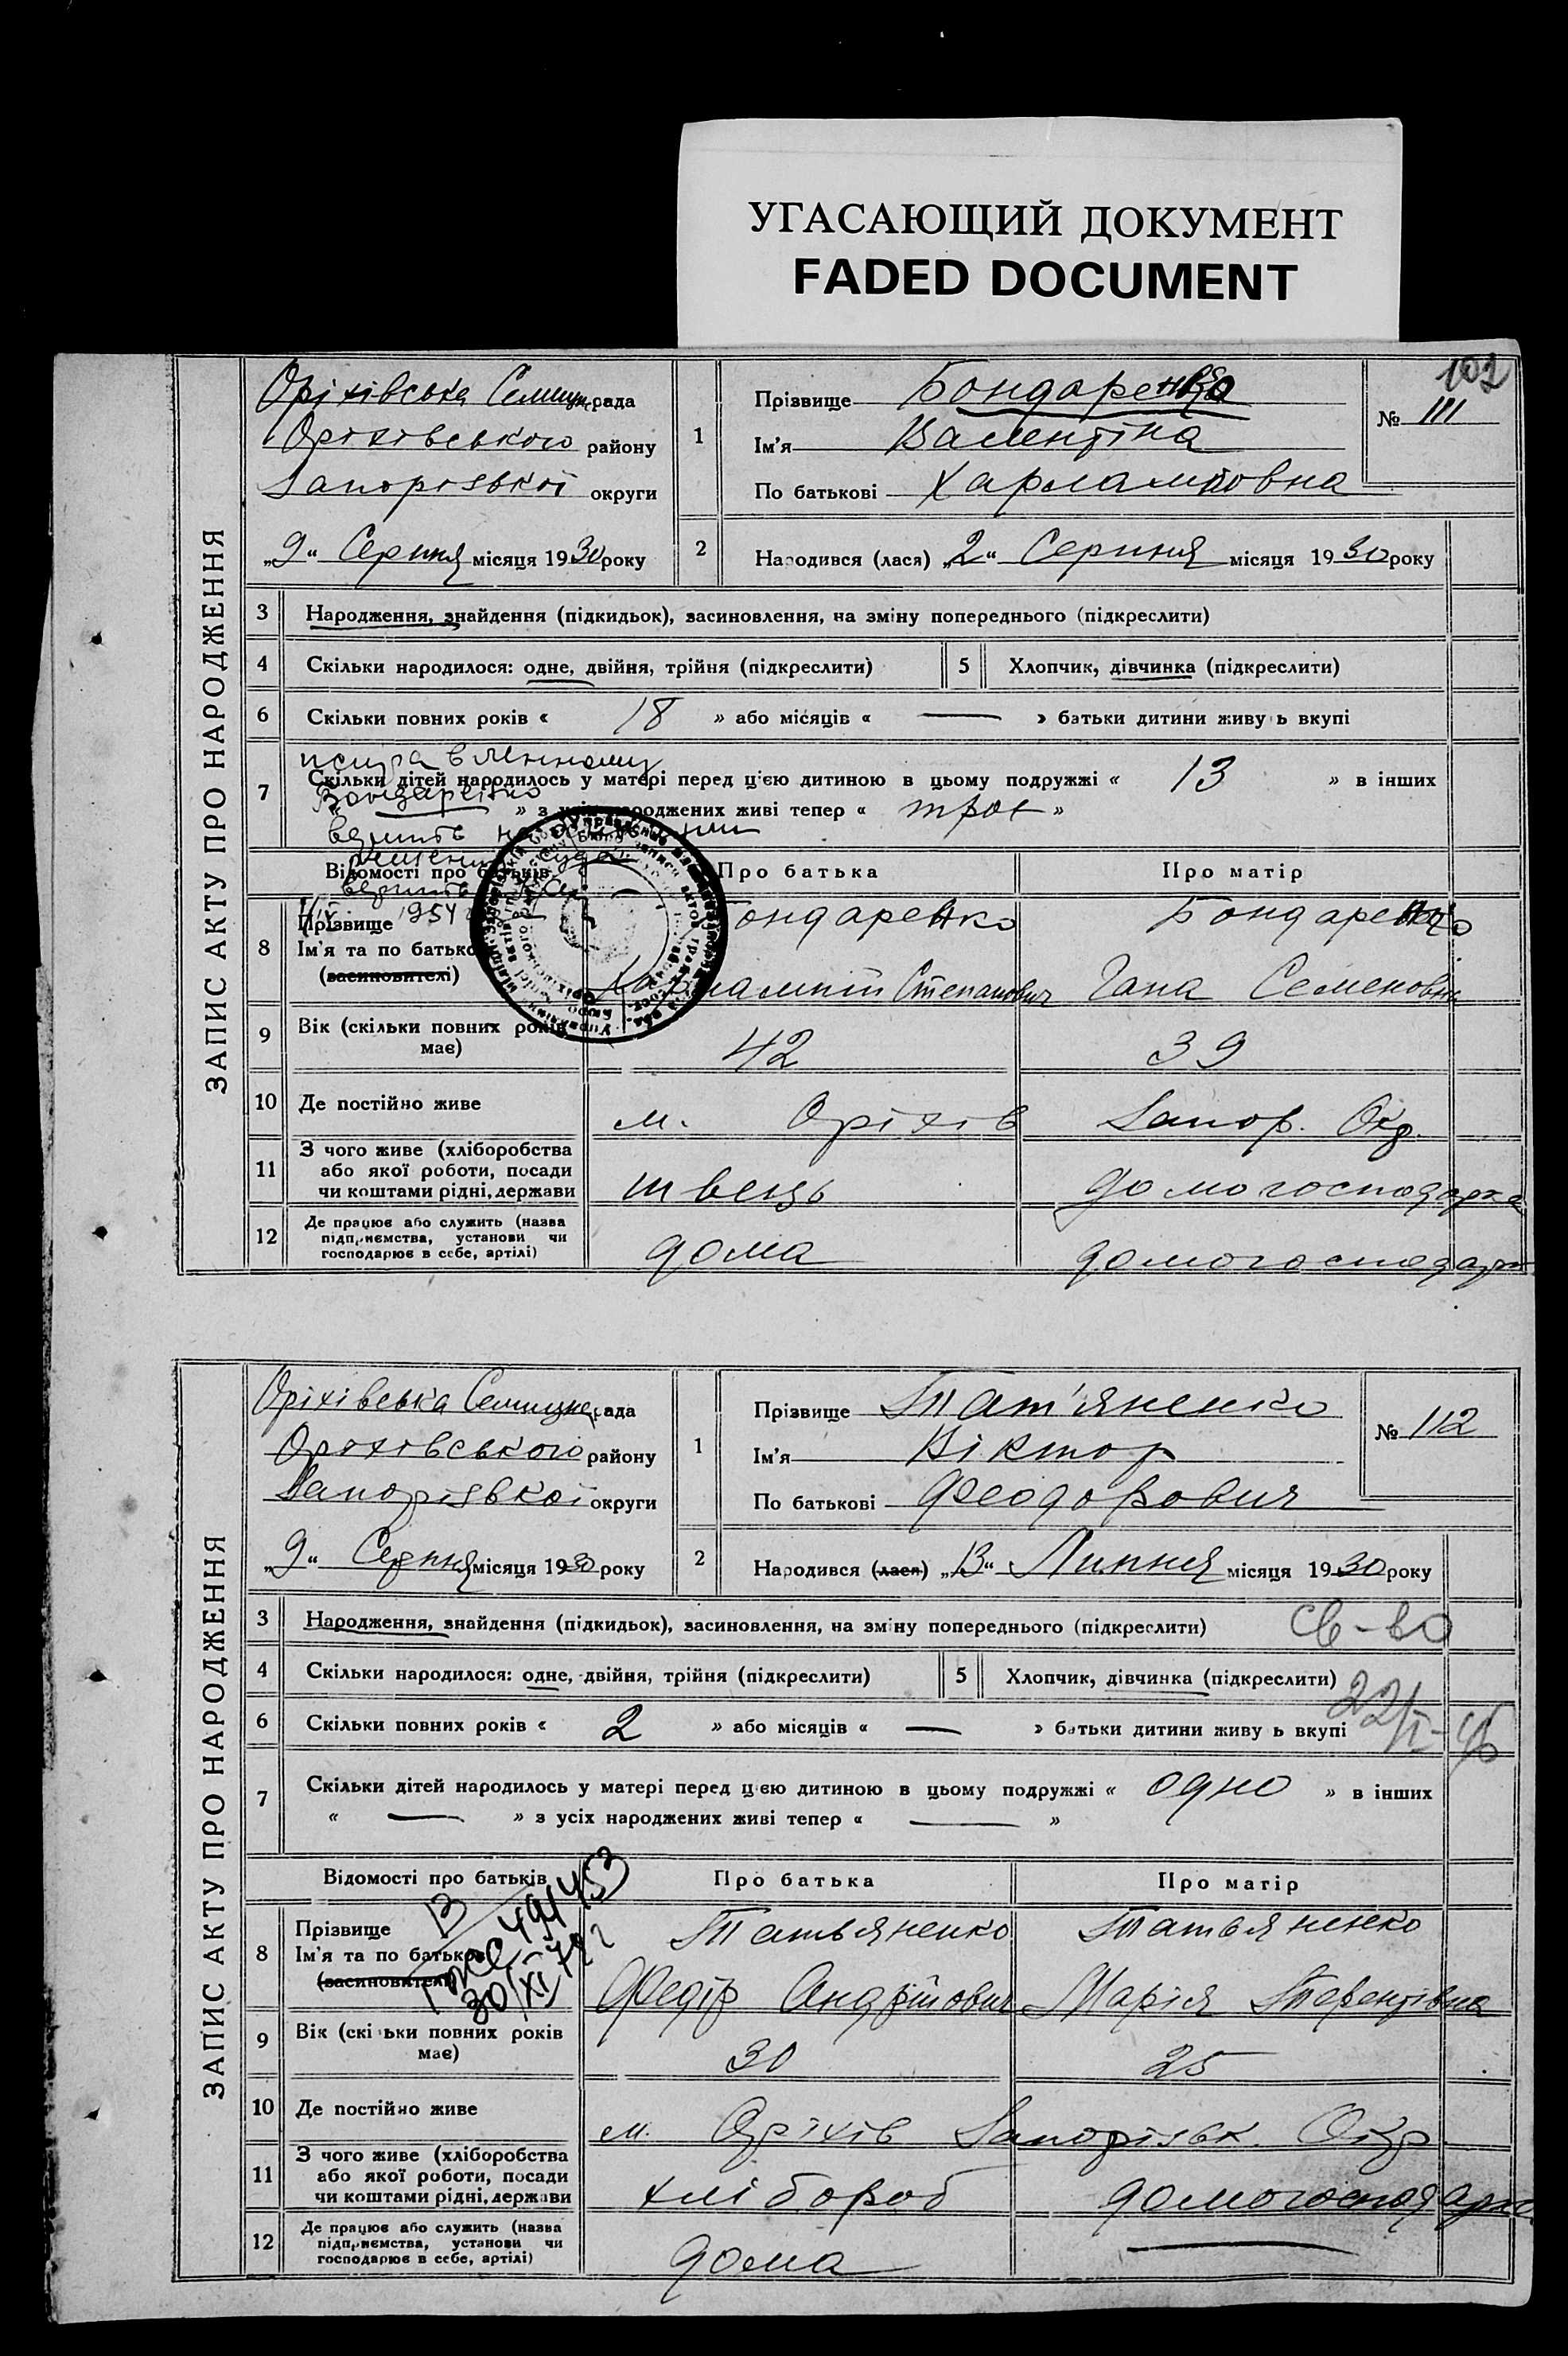 УГАСАЮЩИЙ ДОКУМЕНТ
FADED DOCUMENT
102
ЗАПИС АКТУ ПРО НАРОДЖЕННЯ
Оріхівська рада
Оріхівського району
Запорізької округи
„9“ Серпня місяця 1930 року
1
Прізвище Бондаренко
Ім'я Валентіна
По батькові Харламповна
№ 111
2
Народився (лася) „2“ Серпня місяця 1930 року
3 Народження, знайдення (підкидьок), засиновлення, на зміну попереднього (підкреслити)
4 Скільки народилося: одне, двійня, трійня (підкреслити)
5 Хлопчик, дівчинка (підкреслити)
6 Скільки повних років « 18 » або місяців « — » батьки дитини живу ь вкупі
7 Скільки дітей народилось у матері перед цією дитиною в цьому подружжі « 13 » в інших
» з усіх народжених живі тепер « трое »
Бондаренко
верить
1954
Відомості про батьків
Про батька
Про матір
8 Прізвище
Ім'я та по батькові
(засиновителі)
Бондаренко
Харлампій Степанович
Бондаренко
Гана Семеновна
9 Вік (скільки повних років має)
42
39
10 Де постійно живе
м. Оріхів Запор. Окр.
11 З чого живе (хліборобства
або якої роботи, посади
чи коштами рідні, держави
швець
домогосподарка
12 Де працює або служить (назва
підприємства, установи чи
господарює в себе, артілі)
дома
домогосподарк
ЗАПИС АКТУ ПРО НАРОДЖЕННЯ
Оріхівська рада
Оріхівського району
Запорізької округи
„9“ Серпня місяця 1930 року
1
Прізвище Тат'яненко
Ім'я Віктор
По батькові Феодорович
№ 112
2
Народився (лася) „13“ Липня місяця 1930 року
3 Народження, знайдення (підкидьок), засиновлення, на зміну попереднього (підкреслити)
св-во
4 Скільки народилося: одне, двійня, трійня (підкреслити)
5 Хлопчик, дівчинка (підкреслити)
6 Скільки повних років « 2 » або місяців « — » батьки дитини живу ь вкупі
7 Скільки дітей народилось у матері перед цією дитиною в цьому подружжі « одно » в інших
« — » з усіх народжених живі тепер « — »
Відомості про батьків
Про батька
Про матір
8 Прізвище
Ім'я та по батькові
(засиновителі)
Татьяненко
Федір Андрійович
Татьяненко
Марія Терентівна
9 Вік (скільки повних років має)
30
25
10 Де постійно живе
м. Оріхів Запорізьк. Окр.
11 З чого живе (хліборобства
або якої роботи, посади
чи коштами рідні, держави
хлібороб
домогосподарка
12 Де працює або служить (назва
підприємства, установи чи
господарює в себе, артілі)
дома